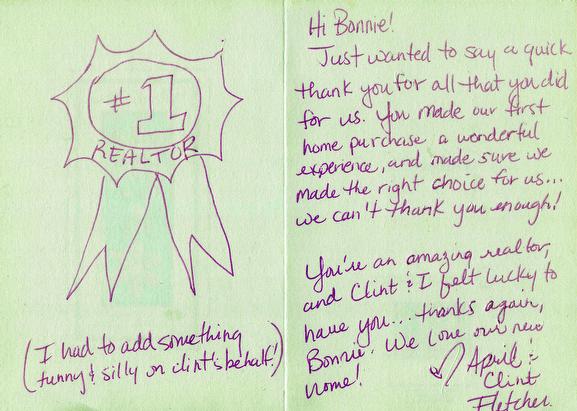 #1
REALTOR
(I had to add something
funny & silly on clint's behalf!)
Hi Bonnie!
Just wanted to say a quick
thank you for all that you did
for us. You made our first
home purchase a wonderful
experience, and made sure we
made the right choice for us...
we can't thank you enough!
You're an amazing realtor,
and Clint & I felt lucky to
have you... thanks again,
Bonnie. We love our new
home!
April &
Clint
Fletcher.